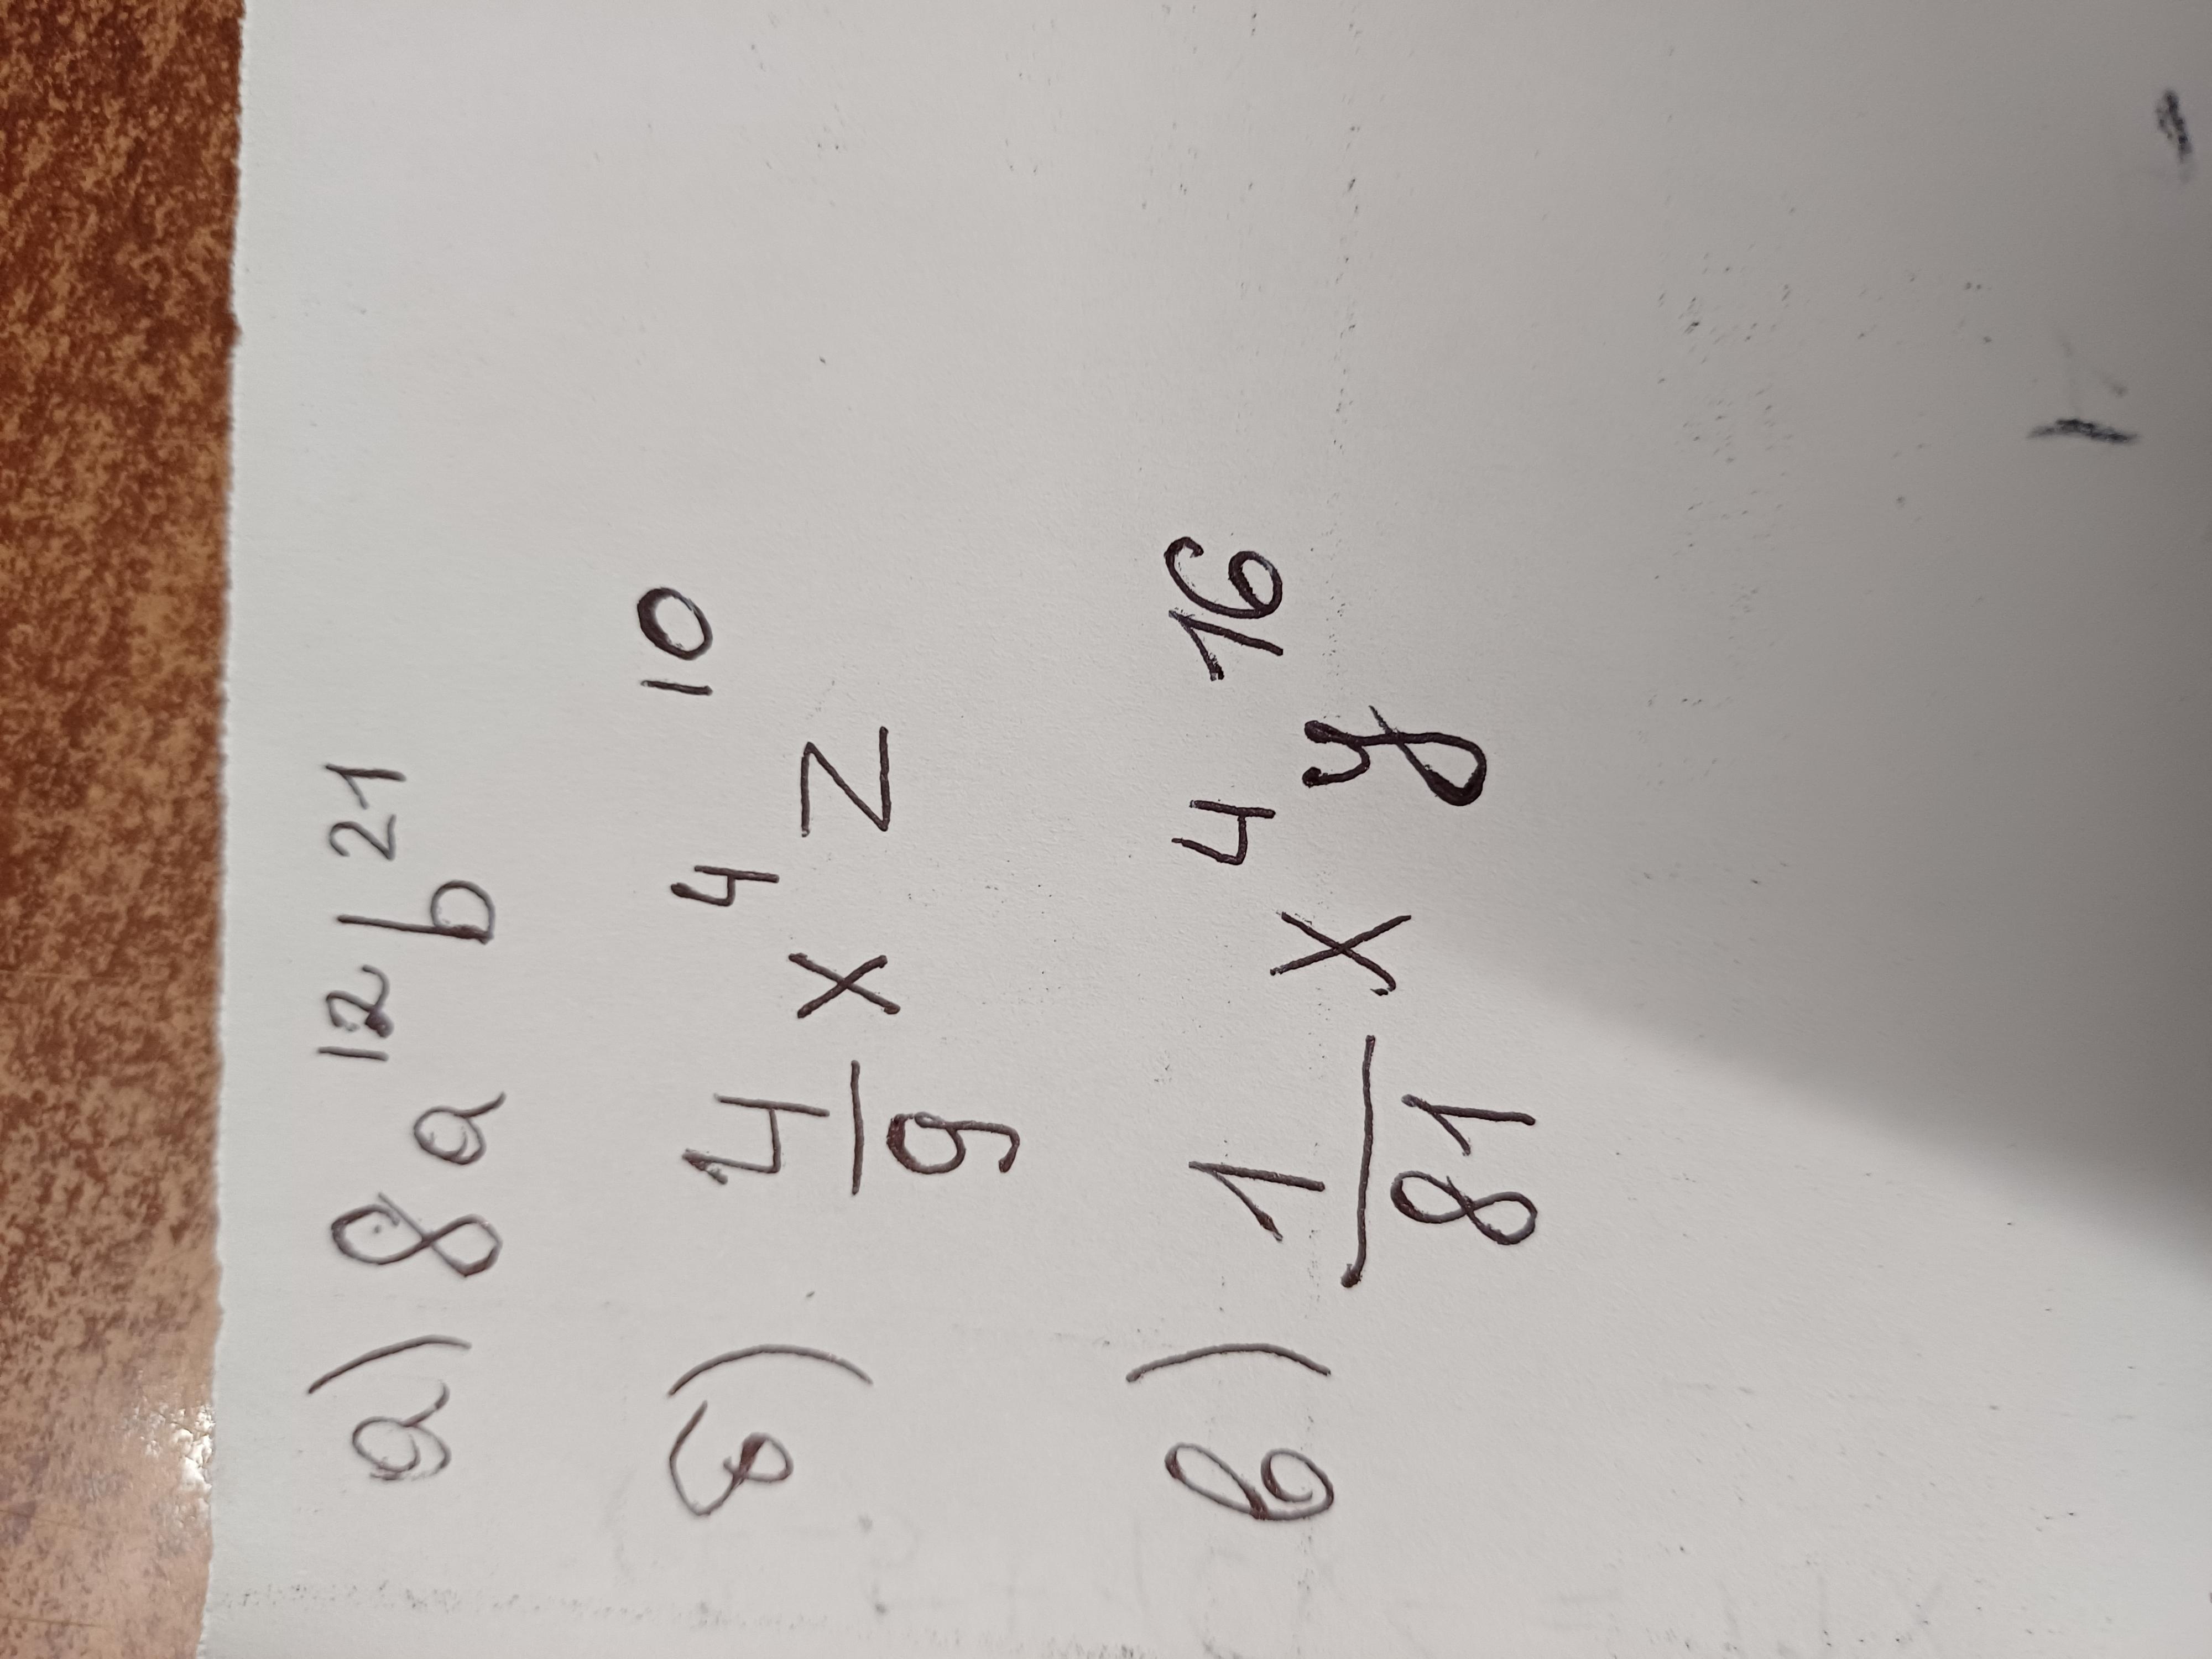 а) 8 a¹² b²¹
б) 4/9 x⁴ z¹⁰
в) 1/81 x⁴ y¹⁶